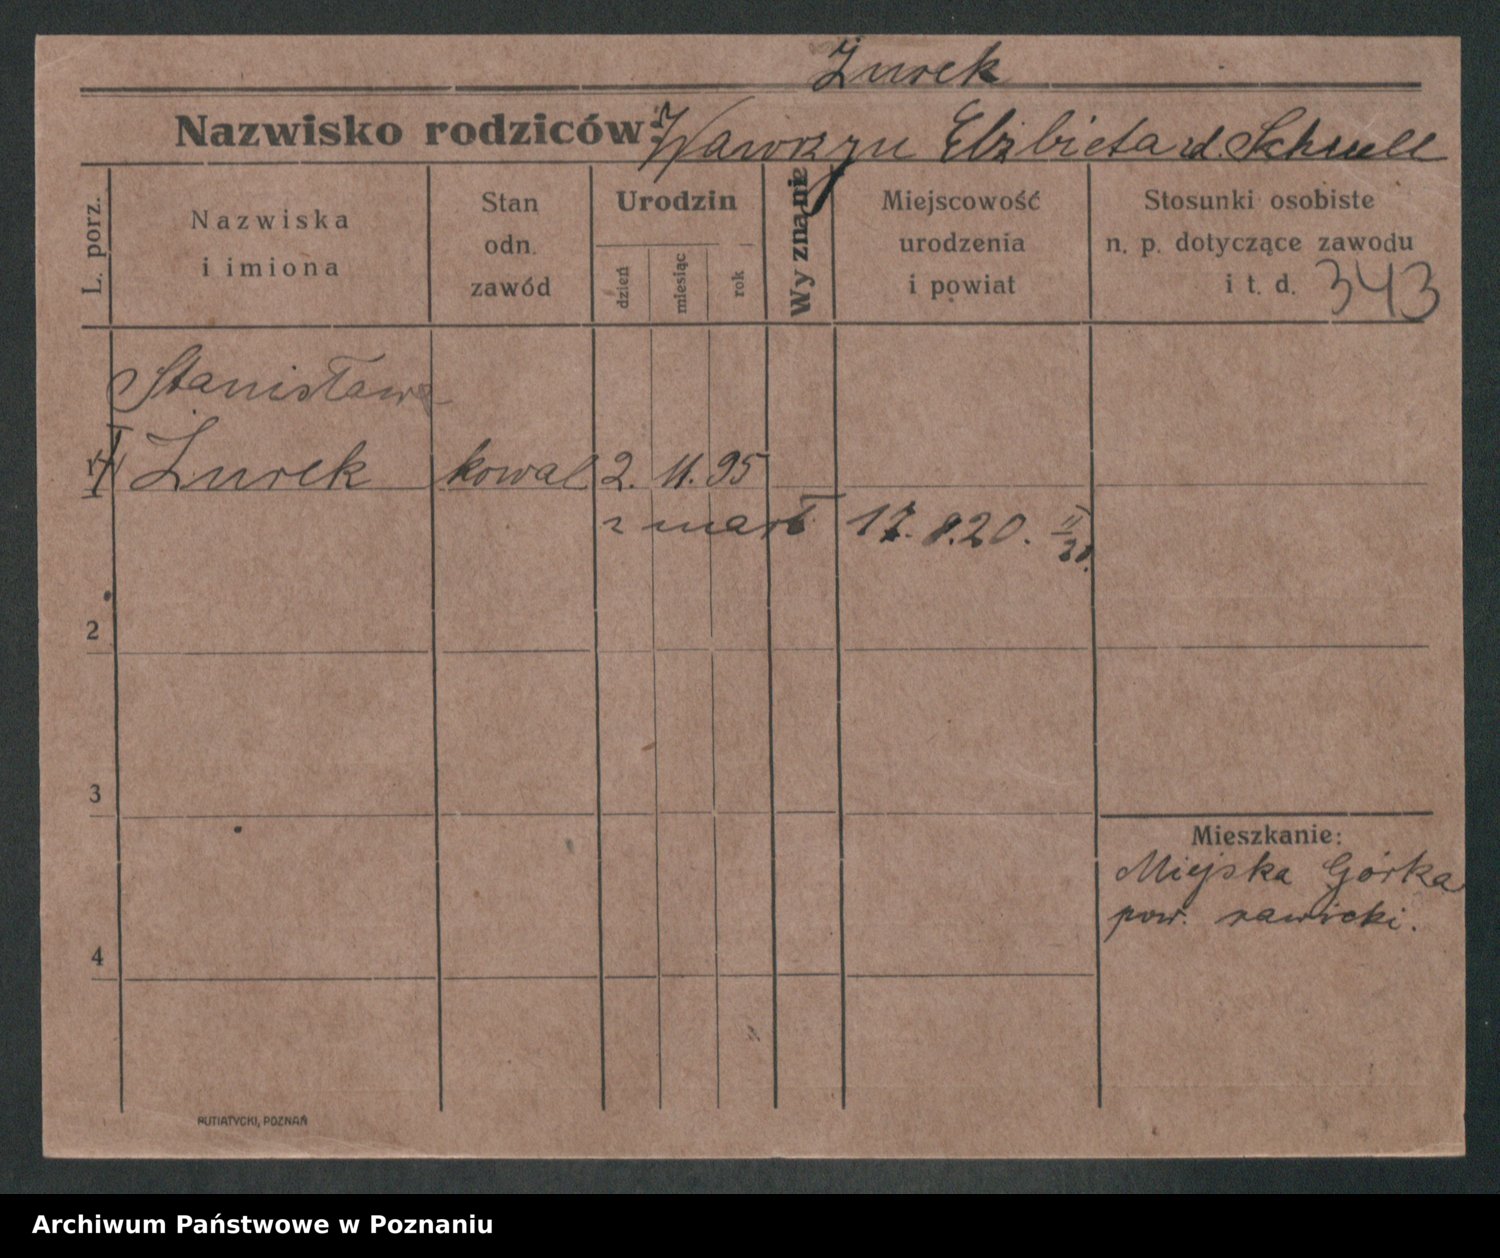 Żurek
Nazwisko rodziców: Wawrzyn Elżbieta rd. Schnell
L. porz.
Nazwiska
i imiona
Stan
odn.
zawód
Urodzin
dzień
miesiąc
rok
Wyznanie
Miejscowość
urodzenia
i powiat
Stosunki osobiste
n. p. dotyczące zawodu
i t. d. 343
Stanisława
Żurek kowal 2. 11. 95
zmarł 17. 8. 20. II/20.
2
3
Mieszkanie:
Miejska Górka
pow. rawicki.
4
PUTIATYCKI, POZNAŃ
Archiwum Państwowe w Poznaniu